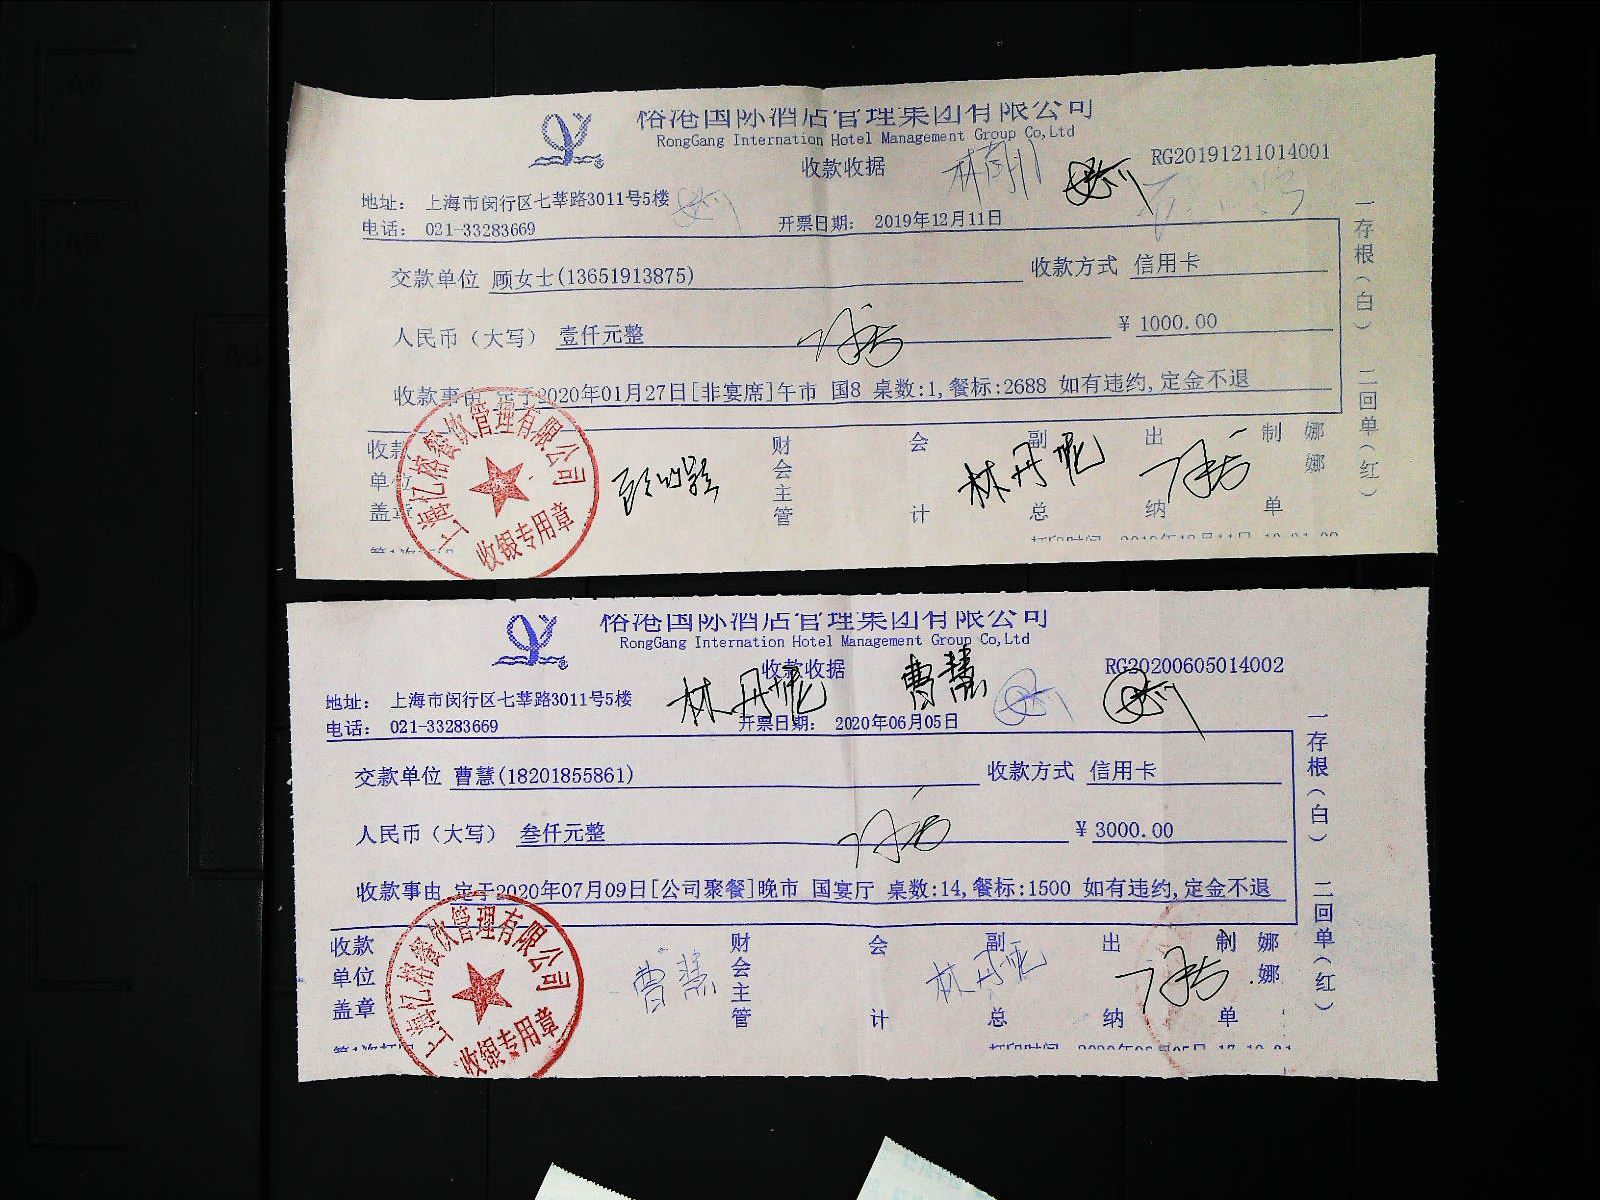 裕港国际酒店管理集团有限公司
RongGang International Hotel Management Group Co,Ltd
收款收据
RG20191211014001
地址： 上海市闵行区七莘路3011号5楼
电话： 021-33283669
开票日期： 2019年12月11日
交款单位 顾女士(13651913875)
收款方式 信用卡
人民币（大写） 壹仟元整
¥ 1000.00
收款事由 定于2020年01月27日[非宴席]午市 国8 桌数:1,餐标:2688 如有违约,定金不退
收款单位盖章
财会主管
会计
副总
林丹妮
出纳
制单
娜娜
一存根（白） 二回单（红）
上海亿榕餐饮管理有限公司
收银专用章
裕港国际酒店管理集团有限公司
RongGang International Hotel Management Group Co,Ltd
收款收据
林丹妮
曹慧
RG20200605014002
地址： 上海市闵行区七莘路3011号5楼
电话： 021-33283669
开票日期： 2020年06月05日
交款单位 曹慧(18201855861)
收款方式 信用卡
人民币（大写） 叁仟元整
¥ 3000.00
收款事由 定于2020年07月09日[公司聚餐]晚市 国宴厅 桌数:14,餐标:1500 如有违约,定金不退
收款单位盖章
曹慧
财会主管
会计
副总
林丹妮
出纳
制单
娜娜
一存根（白） 二回单（红）
上海亿榕餐饮管理有限公司
收银专用章